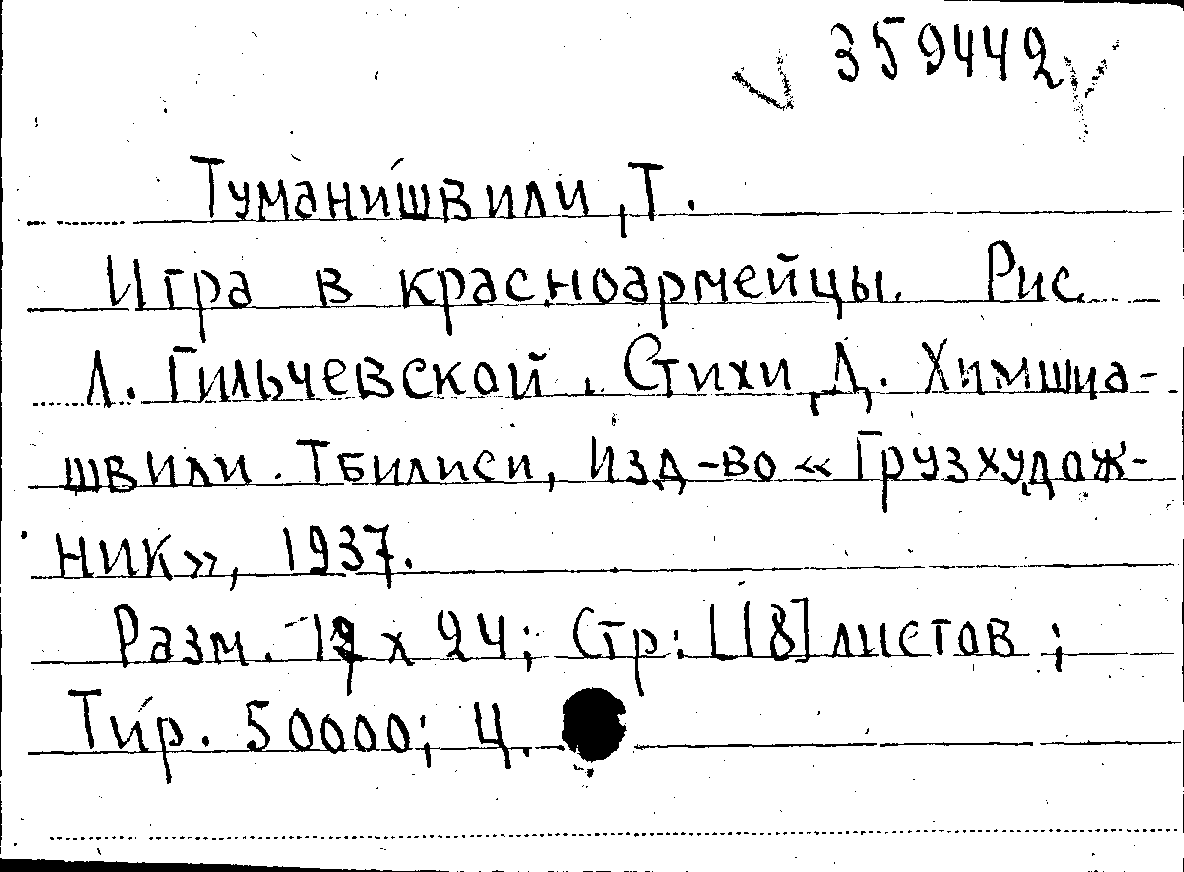 359442
Туманишвили, Т.
Игра в красноармейцы. Рис.
Л. Гильчевской. Стихи Д. Химшиа-
швили. Тбилиси, Изд-во «Грузхудож-
ник», 1937.
Разм. х 24; Стр: [18] листов;
Тир. 50000; Ц.